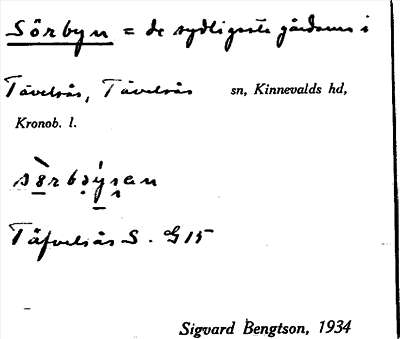 Sörbyn = de sydligaste gårdarna i
Tävelsås, Tävelsås sn, Kinnevalds hd,
Kronob. l.
Täfvelsås S. G 15
Sigvard Bengtson, 1934